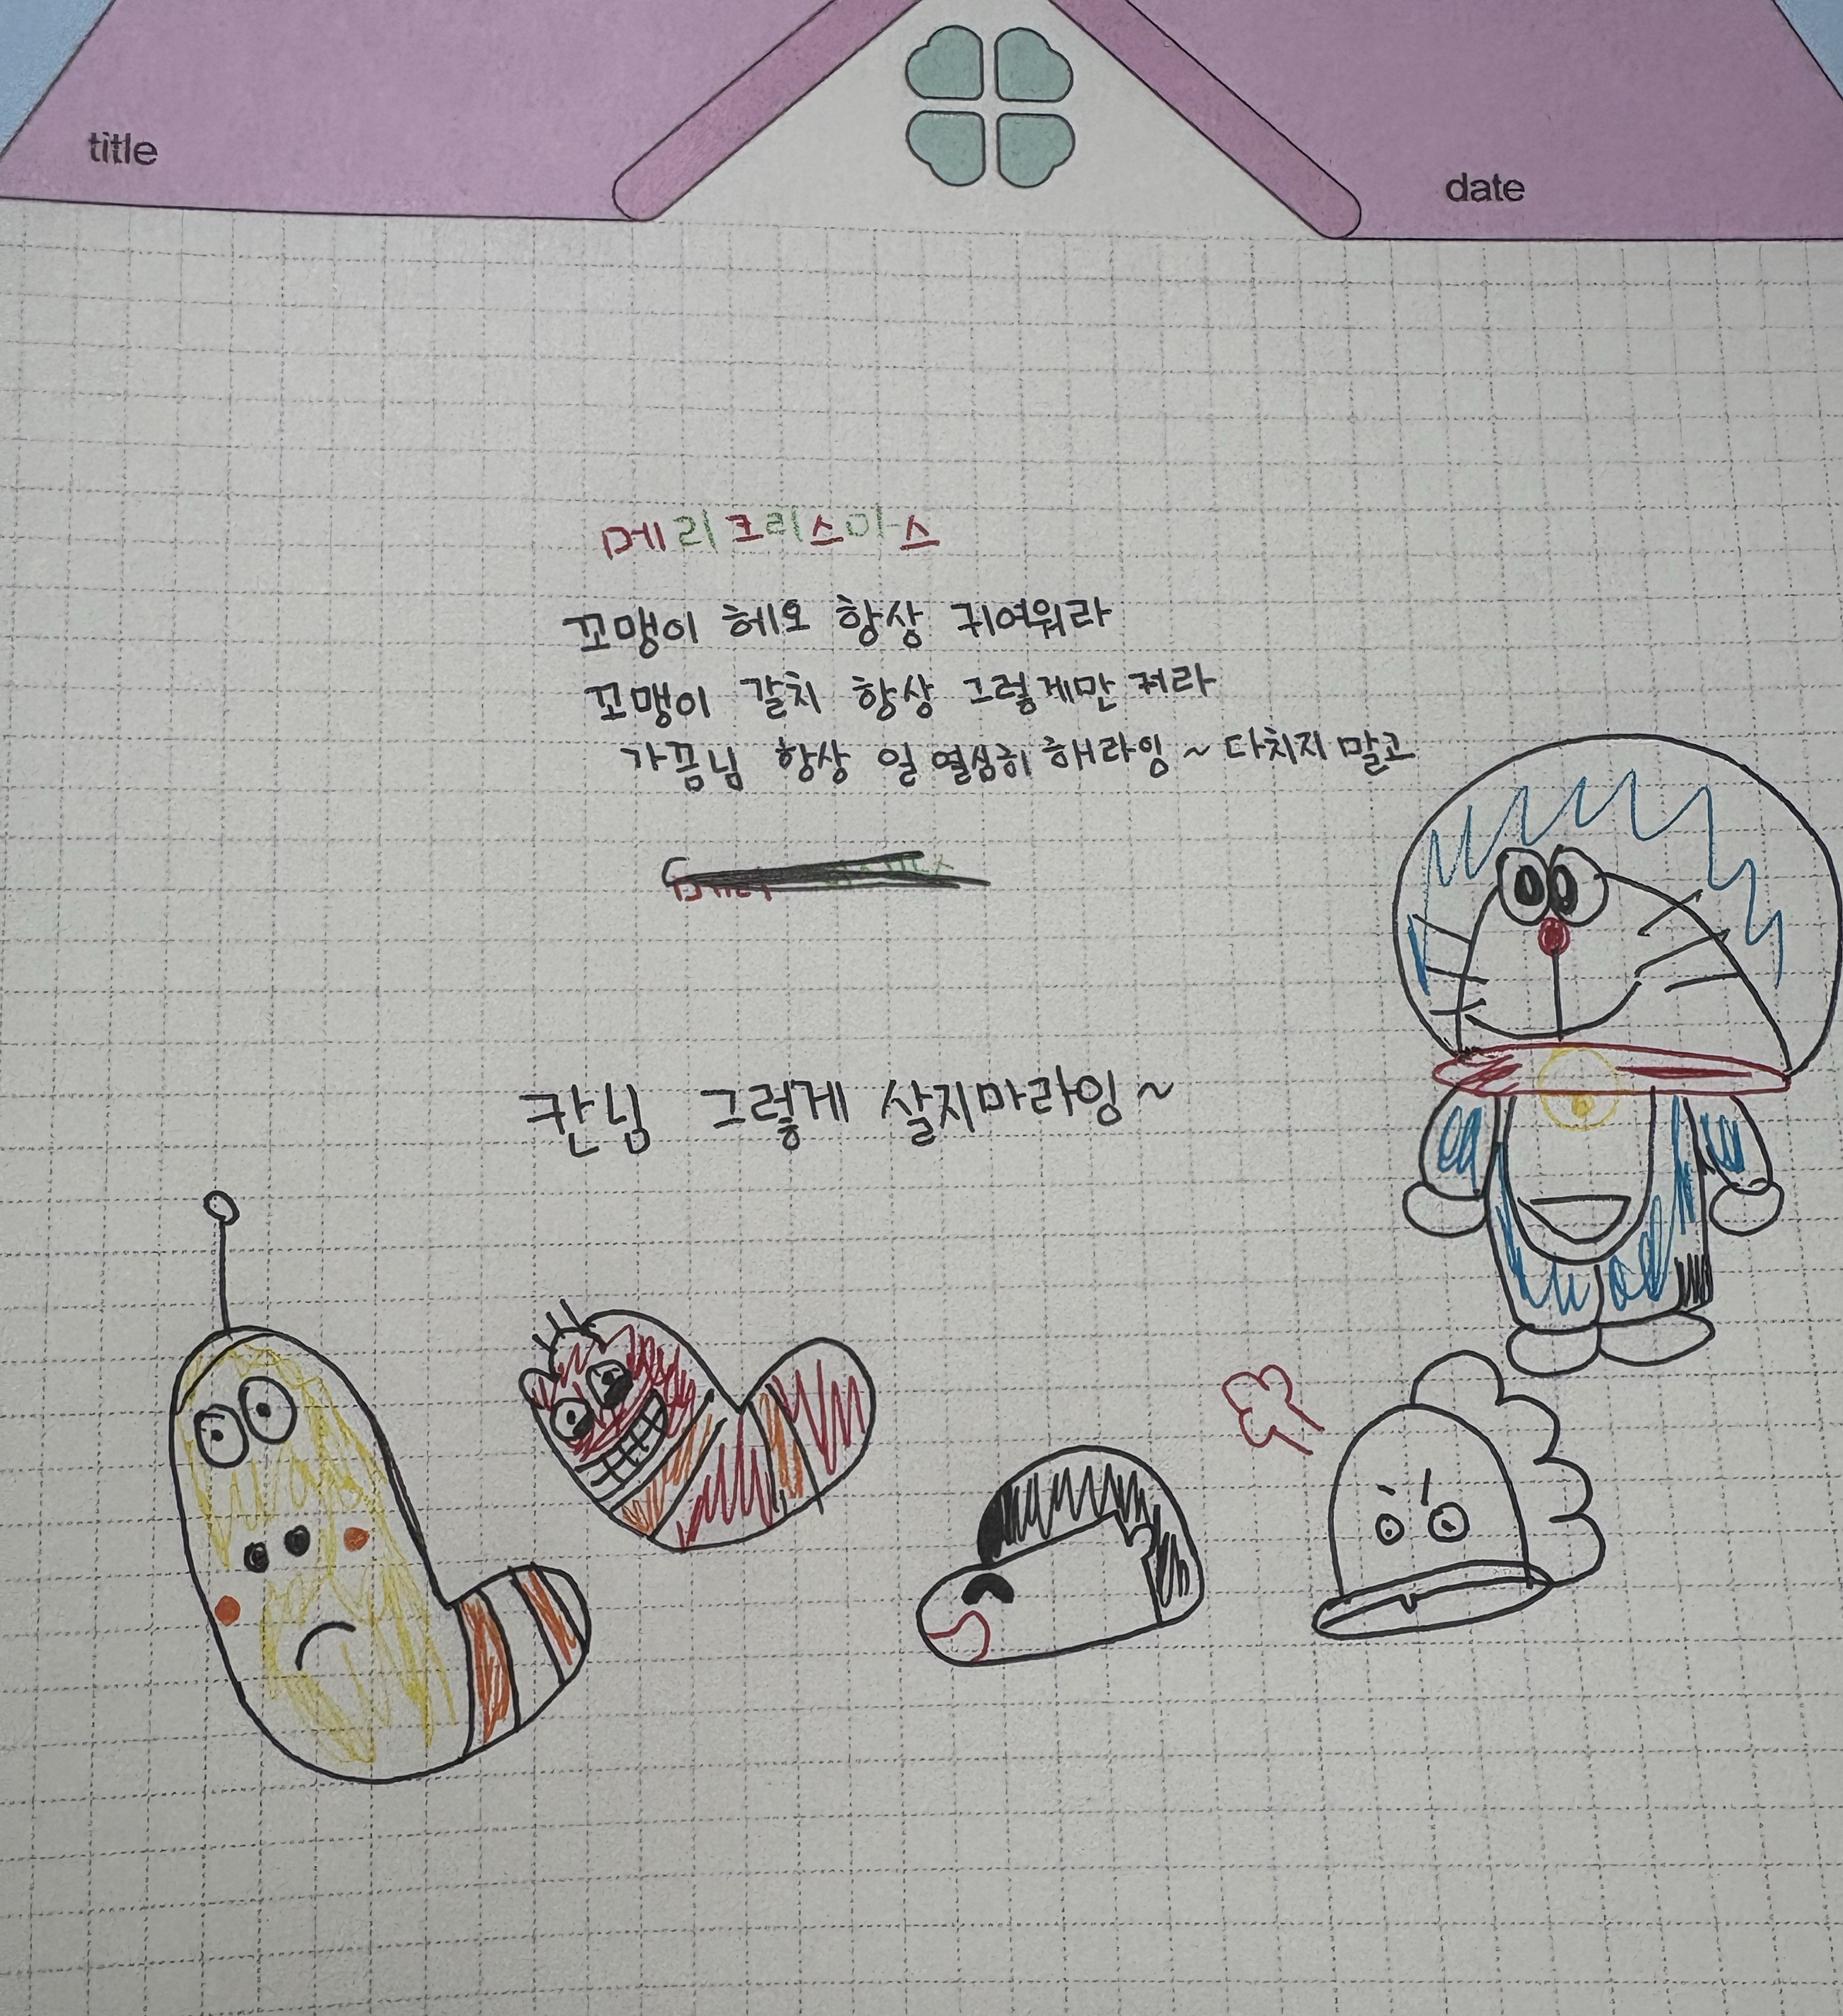 title
date
메리크리스마스
꼬맹이 헤오 항상 귀여워라
꼬맹이 갈치 항상 그렇게만 커라
가끔님 항상 일 열심히 해라잉~ 다치지 말고
칸님 그렇게 살지마라잉~